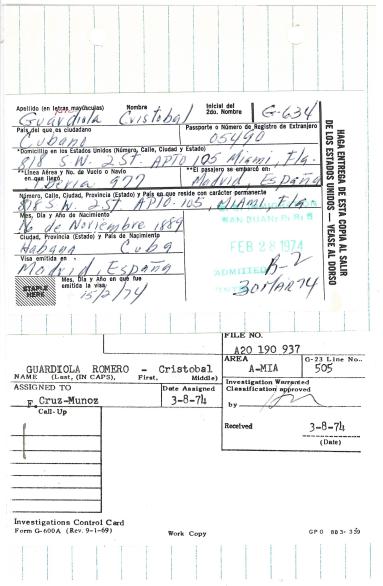 Apellido (en letras mayúsculas) Nombre Inicial del 2do. Nombre G-634
Guardiola Cristobal
País del que es ciudadano Pasaporte o Número de Registro de Extranjero
Cubano 05490
*Domicilio en los Estados Unidos (Número, Calle, Ciudad y Estado)
818 S.W. 2 St. APTO 105 Miami, Fla.
**Línea Aérea y No. de Vuelo o Navío en que llegó **El pasajero se embarcó en:
Iberia 977 Madrid España
Número, Calle, Ciudad, Provincia (Estado) y País en que reside con carácter permanente
818 S.W. 2 ST. APTO. 105, MIAMI, Fla.
Mes, Día y Año de Nacimiento
16 de Noviembre 1889
Ciudad, Provincia (Estado) y País de Nacimiento
Habana Cuba
Visa emitida en
Madrid, España
Mes, Día y Año en que fue emitida la visa
15/2/74
STAPLE HERE
SAN JUAN, P.R.
FEB 28 1974
ADMITTED
B-2
30 MAR 74
HAGA ENTREGA DE ESTA COPIA AL SALIR
DE LOS ESTADOS UNIDOS — VEASE AL DORSO
FILE NO.
A20 190 937
AREA G-23 Line No..
A-MIA 505
GUARDIOLA ROMERO - Cristobal
NAME (Last, (IN CAPS), First, Middle)
ASSIGNED TO Date Assigned
F. Cruz-Munoz 3-8-74
Investigation Warranted
Classification approved
by
Call-Up
Received 3-8-74
(Date)
Investigations Control Card
Form G-600A (Rev. 9-1-69)
Work Copy
GPO 883-359